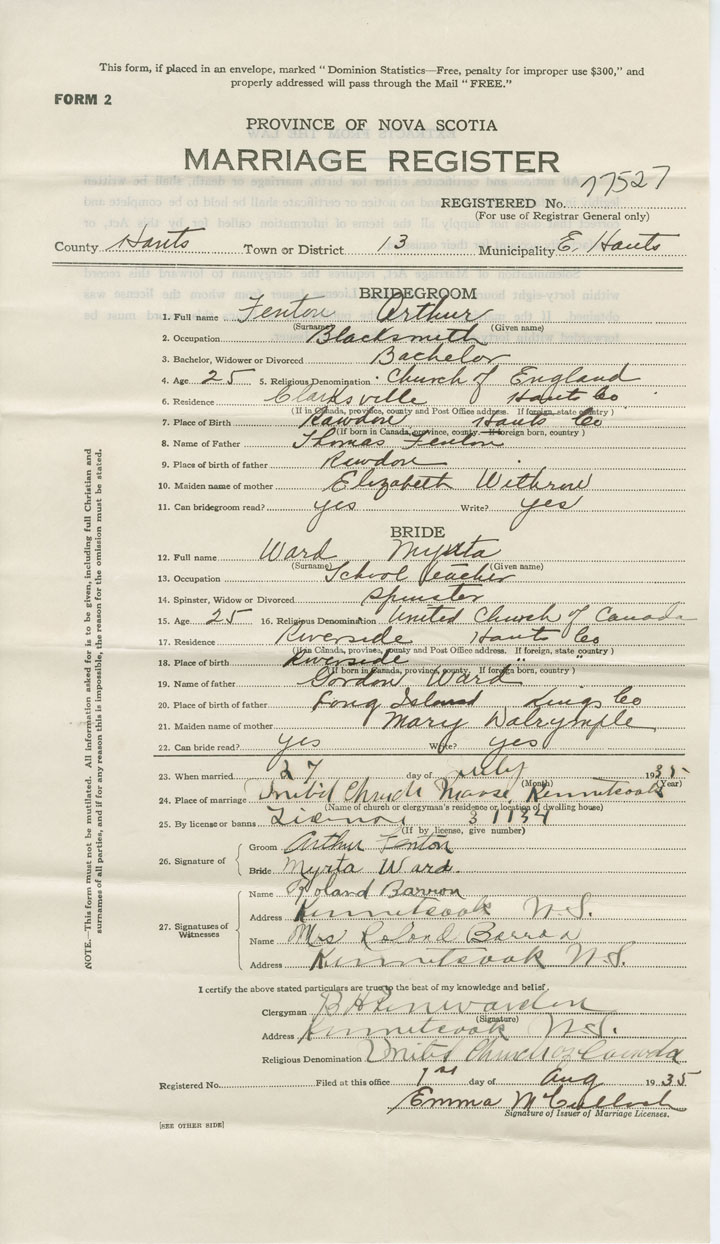 This form, if placed in an envelope, marked "Dominion Statistics—Free, penalty for improper use $300," and
properly addressed will pass through the Mail "FREE."
FORM 2
PROVINCE OF NOVA SCOTIA
MARRIAGE REGISTER
REGISTERED No. 77527
(For use of Registrar General only)
County Hants Town or District 13 Municipality E. Hants
BRIDEGROOM
1. Full name Fenton Arthur
(Surname) (Given name)
2. Occupation Blacksmith
3. Bachelor, Widower or Divorced Bachelor
4. Age 25 5. Religious Denomination Church of England
6. Residence Clarksville Hants Co
(If in Canada, province, county and Post Office address. If foreign, state country)
7. Place of Birth Rawdon Hants Co
(If born in Canada, province, county. If foreign born, country)
8. Name of Father Thomas Fenton
9. Place of birth of father Rawdon
10. Maiden name of mother Elizabeth Withrow
11. Can bridegroom read? yes Write? yes
BRIDE
12. Full name Ward Myrta
(Surname) (Given name)
13. Occupation School Teacher
14. Spinster, Widow or Divorced Spinster
15. Age 25 16. Religious Denomination United Church of Canada
17. Residence Riverside Hants Co
(If in Canada, province, county and Post Office address. If foreign, state country)
18. Place of birth Riverside " "
(If born in Canada, province, county. If foreign born, country)
19. Name of father Gordon Ward
20. Place of birth of father Long Island Kings Co
21. Maiden name of mother Mary Dalrymple
22. Can bride read? yes Write? yes
23. When married 27 day of July 1935
(Month) (Year)
24. Place of marriage United Church Manse, Kennetcook
(Name of church or clergyman's residence or location of dwelling house)
25. By license or banns License 31134
(If by license, give number)
26. Signature of
Groom Arthur Fenton
Bride Myrta Ward.
27. Signatures of Witnesses
Name Roland Barron
Address Kennetcook N.S.
Name Mrs Roland Barron
Address Kennetcook N.S.
I certify the above stated particulars are true to the best of my knowledge and belief.
Clergyman
(Signature)
Address Kennetcook N.S.
Religious Denomination United Church of Canada
Registered No. Filed at this office 1st day of Aug 1935
Emma McCulloch
Signature of Issuer of Marriage Licenses.
[SEE OTHER SIDE]
NOTE.—This form must not be mutilated. All information asked for is to be given, including full Christian and
surnames of all parties, and if for any reason this is impossible, the reason for the omission must be stated.